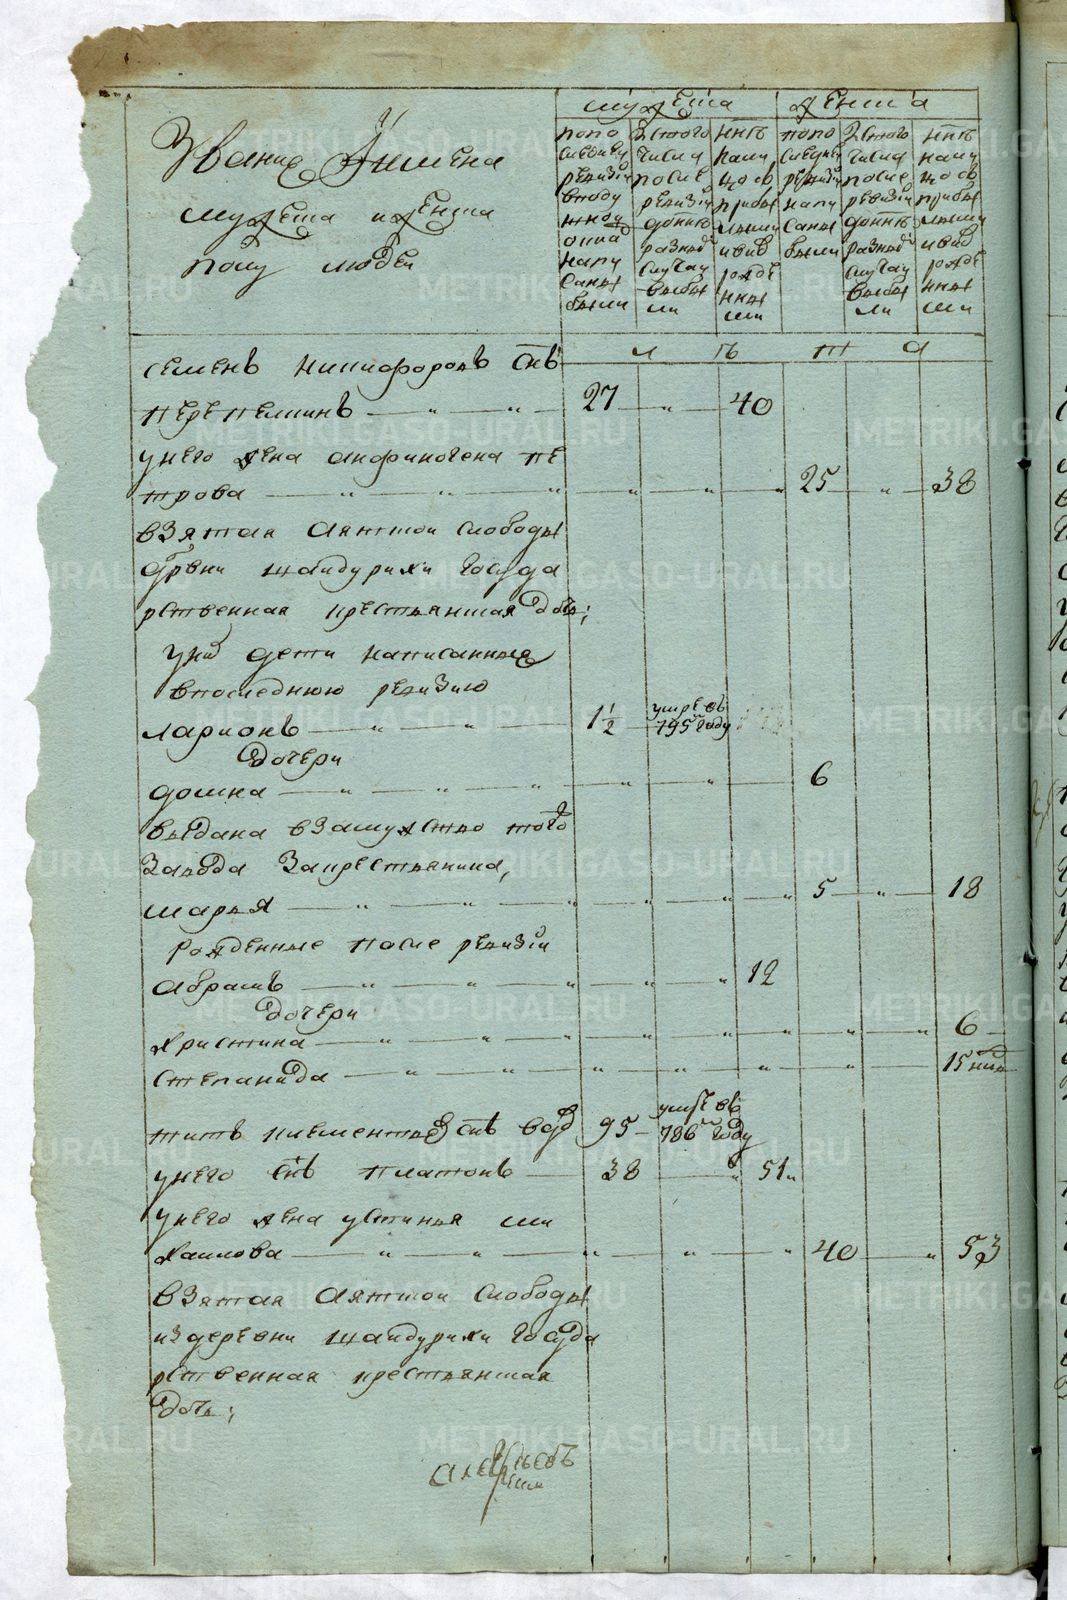 Звание Имена
мужеска иженска
полу людей
мужеска
женска
попо
следней
ревизии
вподу
шную
окла
напи
саных
были
Изтого
числа
после
ревизии
доныне
разными
случаи
выбы
ли
ныне
нали
цо съ
прибы
лыми
ивнов
рожде
нны
ми
попо
следней
ревизии
напи
саных
были
Изтого
числа
после
ревизии
доныне
разными
случаи
выбы
ли
ныне
нали
цо съ
прибы
лыми
ивнов
рожде
нны
ми
л ѣ т а
семенъ никифоровъ снъ
перепелкинъ 27 40
унего жена анфиногена пе
трова 25 38
взятая аятской слободы
дрвни шайдурихи госуда
рственная крестьянская дочь;
уних дети написанныя
впоследнюю ревизию
ларионъ 1½ умре въ 795 году
дочери
домна 6
выдана взамужство того
завода закрестьянина,
марья 5 18
рожденные после ревизии
абрамъ 12
дочери
христина 6
степанида 15 нед
титъ клементьевъ снъ вдв 95 умре въ 786 году
унего снъ платонъ 38 51
унего жена устинья ми
хаилова 40 53
взятая аятской слободы
издеревни шайдурихи госуда
рственная крестьянская
дочь;